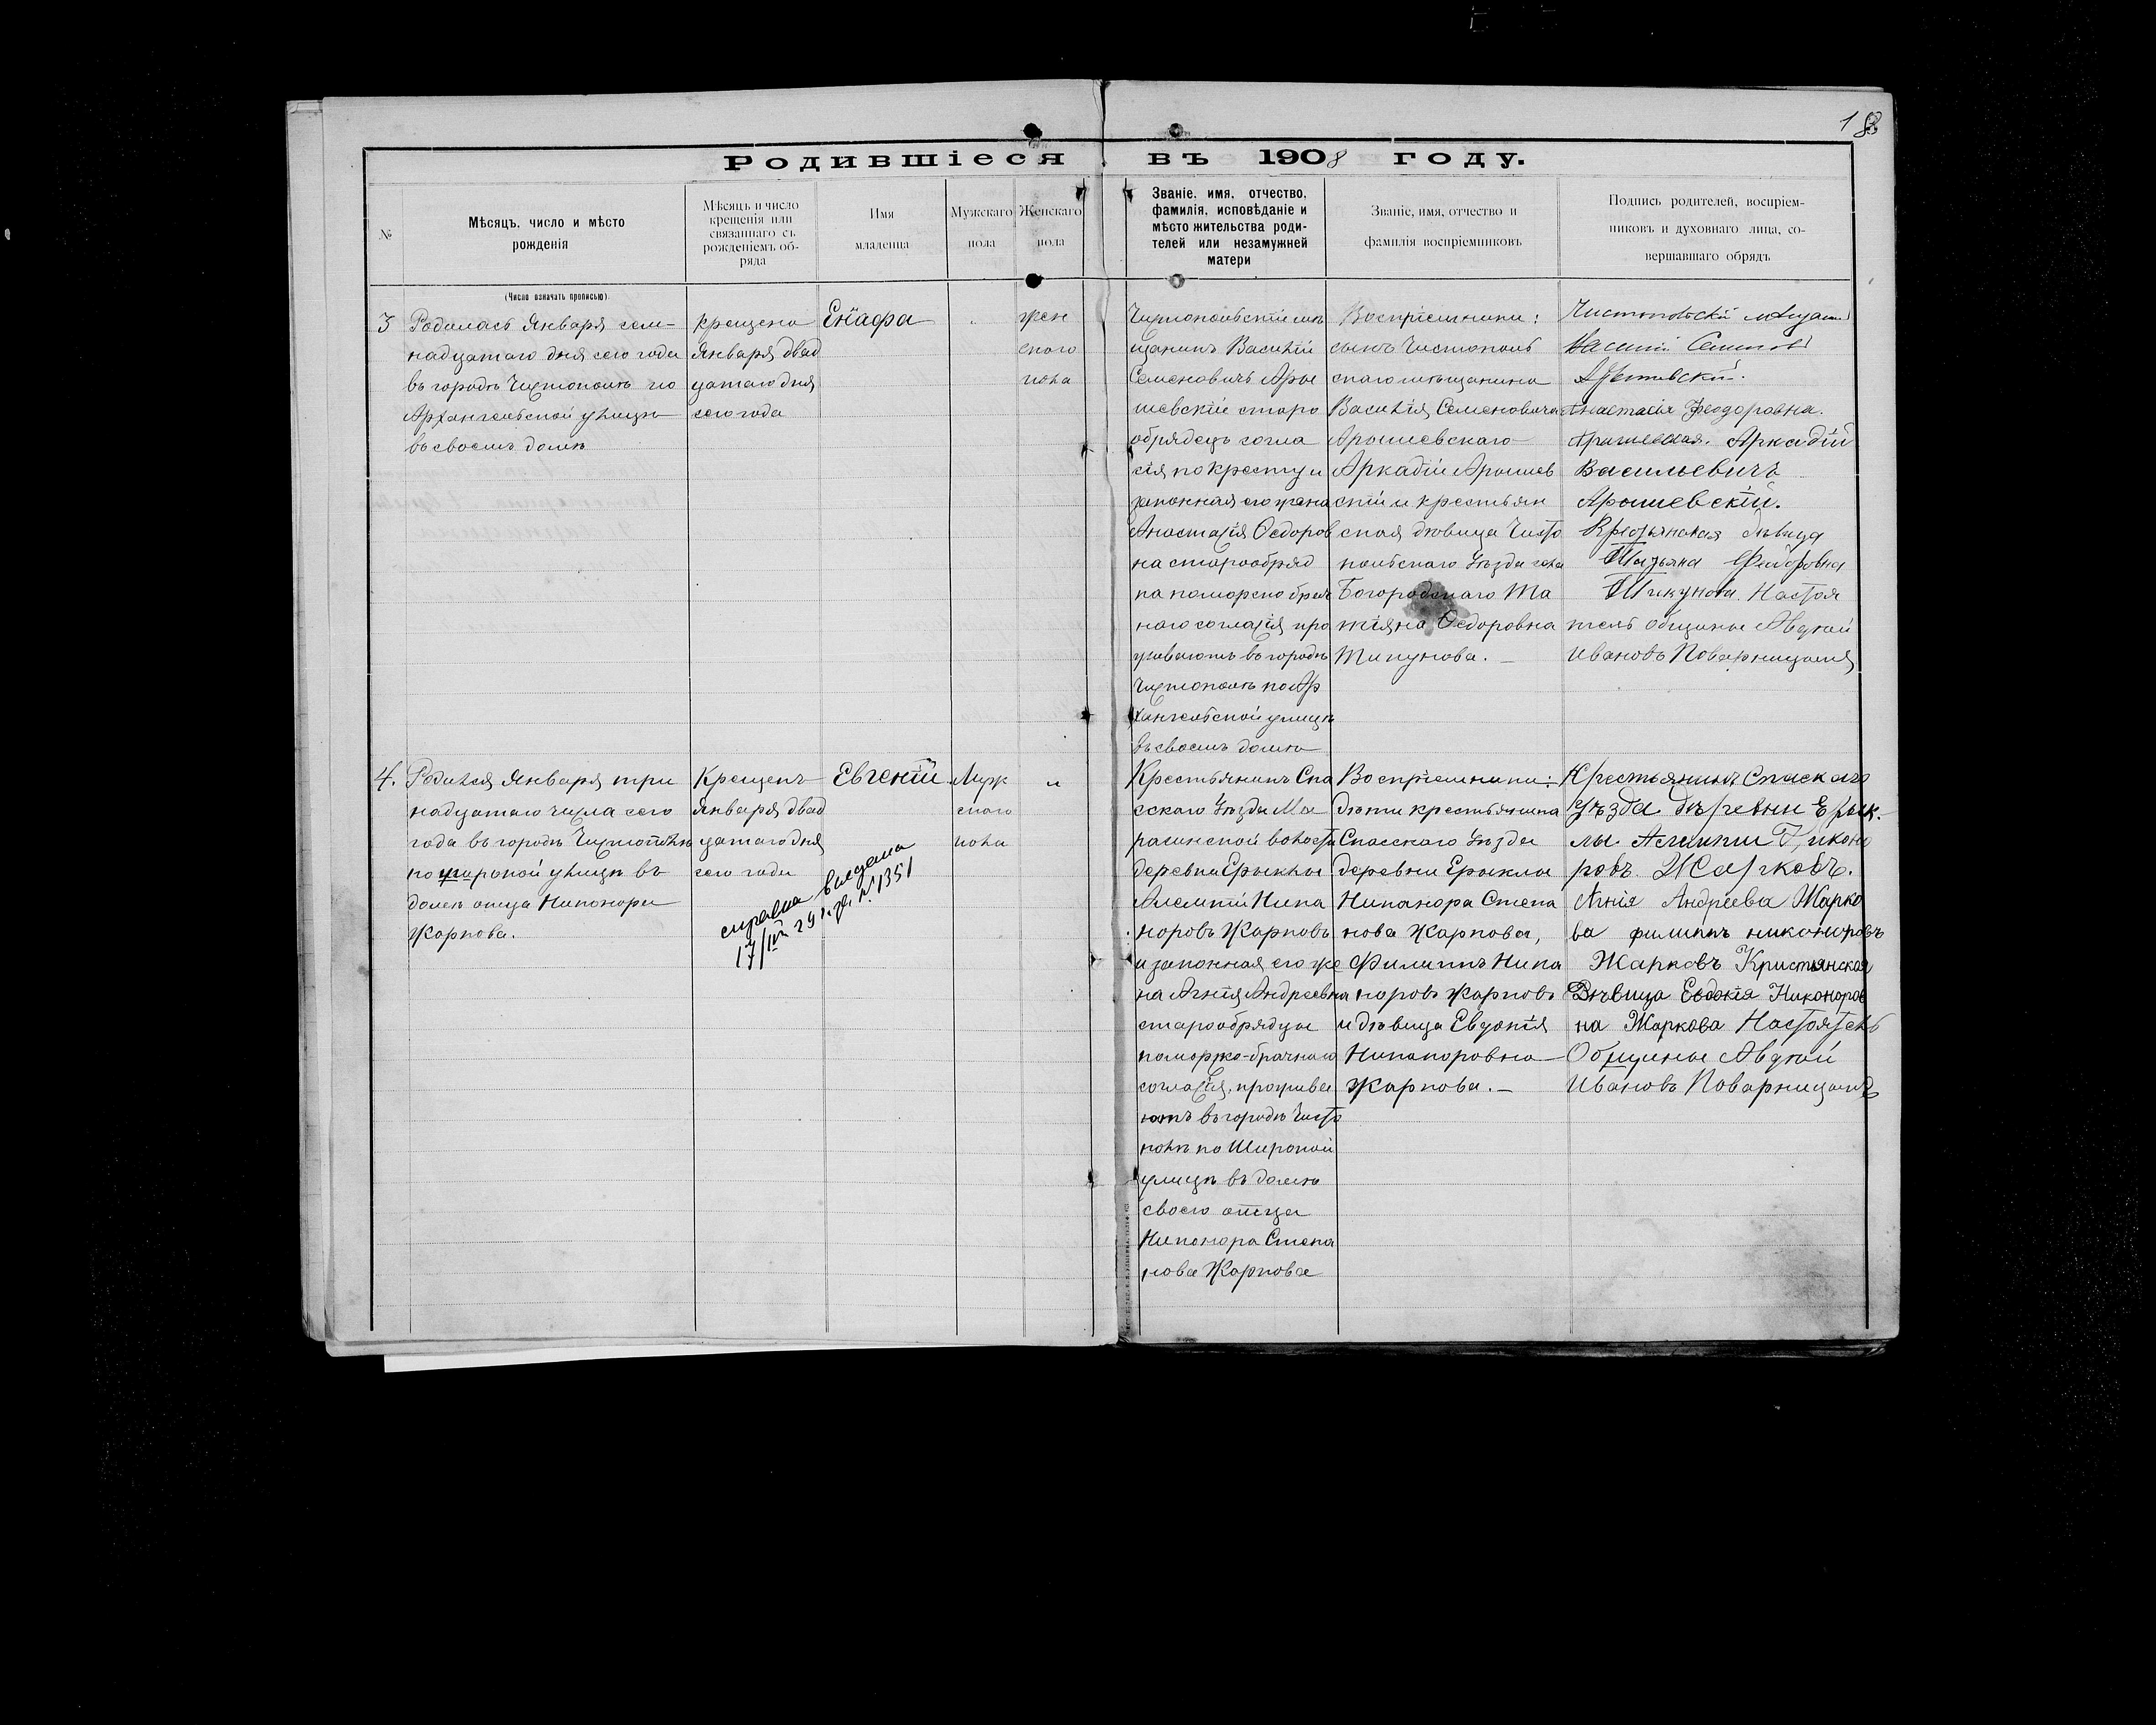 18
Родившіеся въ 1908 году.
№
Мѣсяцъ, число и мѣсто
рожденія
Мѣсяцъ и число
крещенія или
связаннаго съ
рожденіемъ об-
ряда
Имя
младенца
Мужскаго
пола
Женскаго
пола
Званіе, имя, отчество,
фамилія, исповѣданіе и
мѣсто жительства роди-
телей или незамужней
матери
Званіе, имя, отчество и
фамилія воспріемниковъ
Подпись родителей, воспріем-
никовъ и духовнаго лица, со-
вершавшаго обрядъ
(Число означать прописью)
3
Родилась Января сем-
надцатаго дня сего года
въ городѣ Чистополѣ по
Архангельской улицѣ
въ своемъ домѣ
крещена
Января двад
цатаго дня
сего года
Енафа
жен
скаго
пола
Чистопольскій мѣ
щанинъ Василій
Семеновичъ Ары
шевскій старо
обрядецъ согла
сія по кресту и
законная его жена
Анастасія Ѳедоров
на старообряд
ка поморско брач
наго согласія про
живаютъ въ городѣ
Чистополѣ по Ар
хангельской улицѣ
въ своемъ домѣ
Воспріемники:
сынъ Чистополь
скаго мѣщанина
Василія Семеновича
Арышевскаго
Аркадій Арышев
скій и крестьян
ская дѣвица Чисто
польскаго уѣзда села
Богородскаго Та
тіяна Ѳедоровна
Тикунова.
Чистопольскій мѣщанин
Василий Семинов
Анастасія Феодоровна
Аркадій
Васильевичъ
Арышевскій.
Крестьянская дѣвица
Татьяна Федоровна
Тикунова. Настоя
тель общины Авдкий
Ивановъ Поварницынъ
4.
Родился Января три
надцатаго числа сего
года въ городѣ Чистополѣ
по широкой улицѣ въ
домѣ отца Никонора
Жаркова.
Крещенъ
Января двад
цатаго дня
сего года
справка выдана
17/IV 29 г. № 1351
Евгеній
Муж
скаго
пола
"
Крестьянинъ Спа
сскаго уѣзда Ма
расинской волости
деревни Ерыклы
Алемпій Ника
норовъ Жарковъ
и законная его же
на Агнія Андреевна
старообрядцы
поморско-брачнаго
согласія, прожива
ютъ въ городѣ Чисто
полѣ по Широкой
улицѣ въ домѣ
своего отца
Никонора Степа
нова Жаркова
Воспріемники:
дѣти крестьянина
Спасскаго уѣзда
деревни Ерыклы
Никанора Степа
нова Жаркова,
Филиппъ Ника
норовъ Жарковъ
и дѣвица Евдокія
Никаноровна
Жаркова.
Крестьянинъ Спаскаго
Уѣзда дѣревни Ерык-
ровъ Жарковъ.
Агнія Андреева Жарко
ва филиппъ никоноровъ
Жарковъ Кристянская
Дѣвица Евдокія Никоноров
на Жаркова Настоятель
Общины Авдкий
Ивановъ Поварницынъ